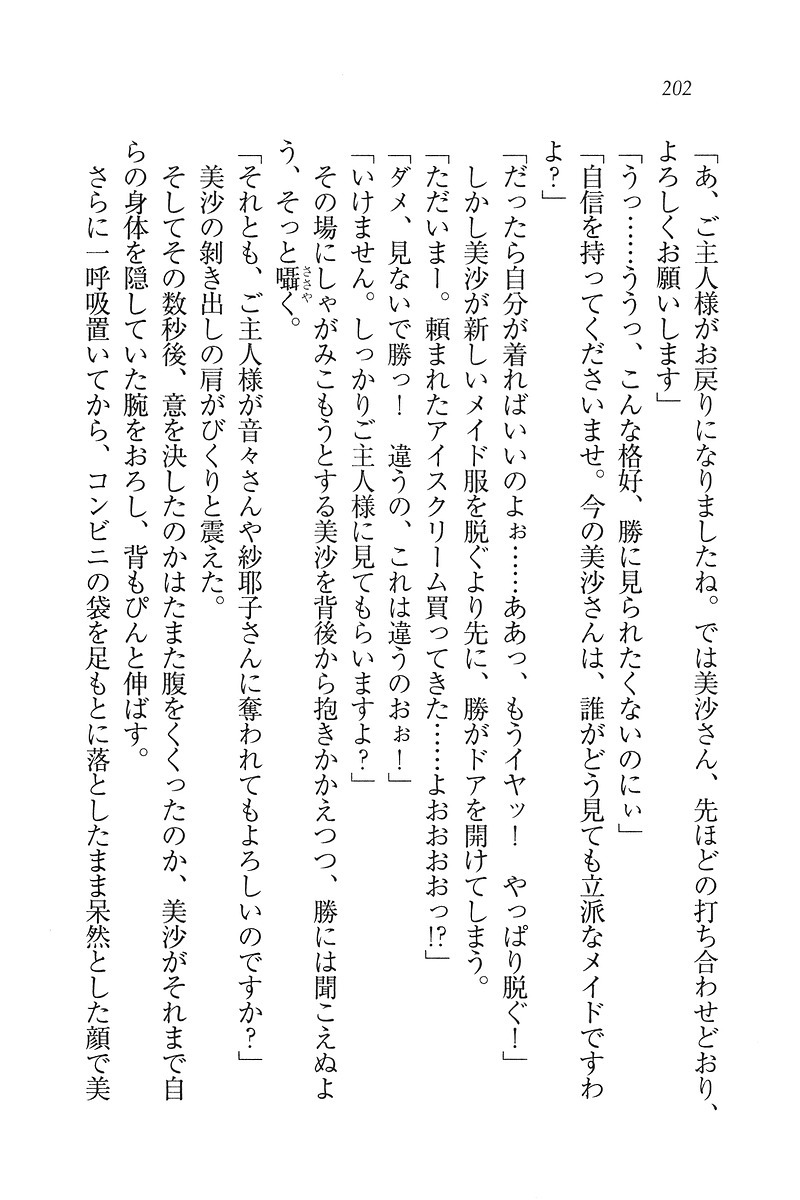 202
「あ、ご主人様がお戻りになりましたね。では美沙さん、先ほどの打ち合わせどおり、
よろしくお願いします」
「うっ……ううっ、こんな格好、勝に見られたくないのにぃ」
「自信を持ってくださいませ。今の美沙さんは、誰がどう見ても立派なメイドですわ
よ？」
「だったら自分が着ればいいのよぉ……ああっ、もうイヤッ！　やっぱり脱ぐ！」
しかし美沙が新しいメイド服を脱ぐより先に、勝がドアを開けてしまう。
「ただいまー。頼まれたアイスクリーム買ってきた……よおおおおっ!?」
「ダメ、見ないで勝っ！　違うの、これは違うのおぉ！」
「いけません。しっかりご主人様に見てもらいますよ？」
その場にしゃがみこもうとする美沙を背後から抱きかかえつつ、勝には聞こえぬよ
う、そっと囁く。
ささや
「それとも、ご主人様が音々さんや紗耶子さんに奪われてもよろしいのですか？」
美沙の剝き出しの肩がびくりと震えた。
そしてその数秒後、意を決したのかはたまた腹をくくったのか、美沙がそれまで自
らの身体を隠していた腕をおろし、背もぴんと伸ばす。
さらに一呼吸置いてから、コンビニの袋を足もとに落としたまま呆然とした顔で美